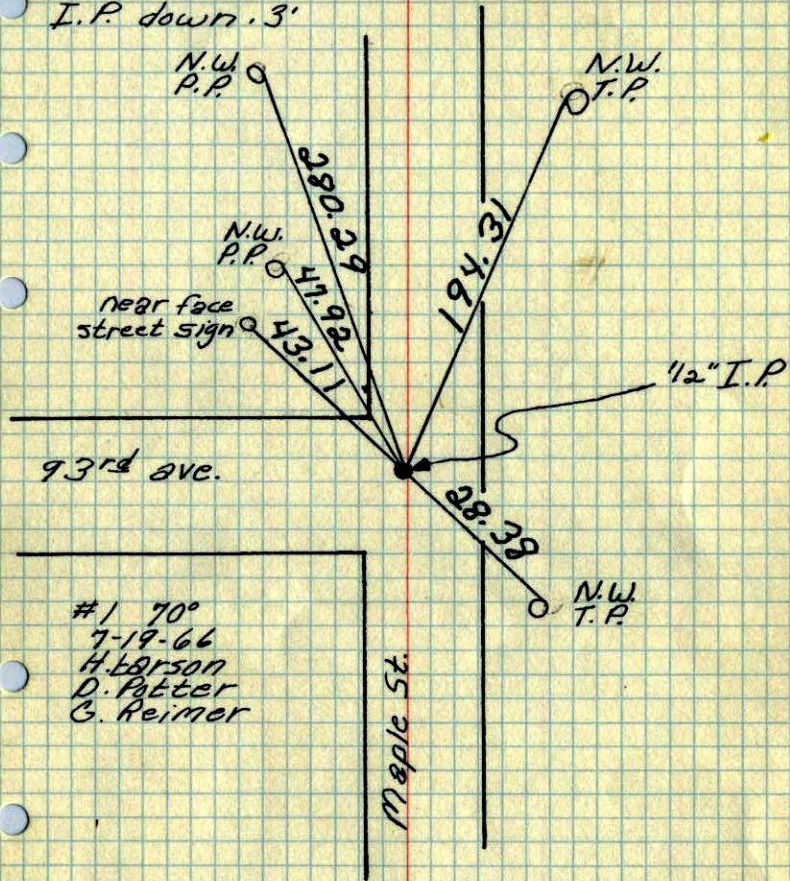 I.P. down .3'
N.W.
P.P.
N.W.
T.P.
280.29
194.31
N.W.
P.P.
47.92
near face
street sign
43.11
1/2" I.P.
93rd ave.
28.38
N.W.
T.P.
#1 70°
7-19-66
H. Larson
D. Potter
G. Reimer
Maple St.